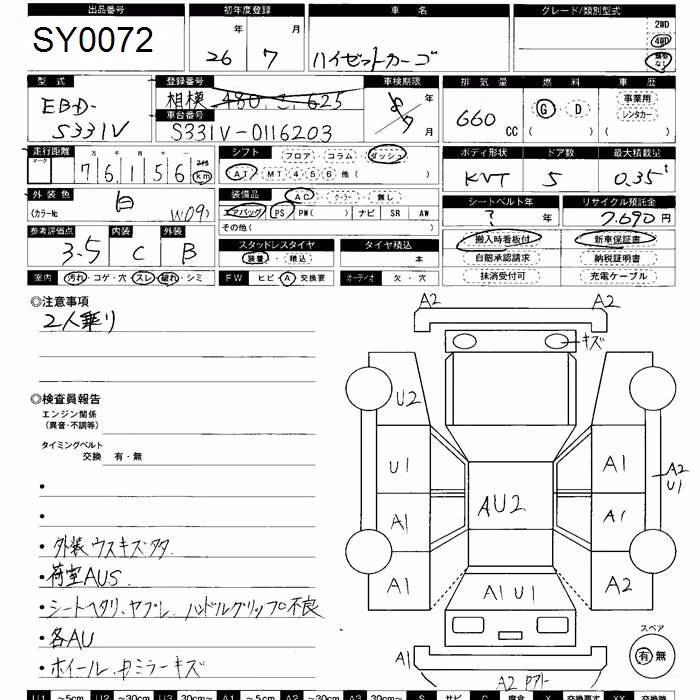 出品番号 初年度登録 車名 グレード/類別型式
SY0072 26年 7月 ハイゼットカーゴ 2WD 4WD
型式 登録番号 車検期限 排気量 燃料 車歴
EBD-S331V 相模 480 年 月 660 CC G・D 事業用 レンタカー
車台番号
S331V-0116203
走行距離 シフト フロア・コラム・ダッシュ ボディ形状 ドア数 最大積載量
マーク 万 千 百 十 一
76156 km AT MT 4 5 6 他( ) 5 0.35t
外装色 装備品 AC・クーラー・無し シートベルト年 リサイクル預託金
白 (カラーNo. W09) エアバッグ PS PW( ) ナビ SR AW ? 年 7,690円
その他( )
参考評価点 内装 外装 スタッドレスタイヤ タイヤ積込 搬入時看板付 新車保証書
3.5 C B 装着・積込 本 自賠承認請求 納税証明書
室内 汚れ・コゲ・穴・スレ・破れ・シミ FW ヒビ・A・交換要 オーディオ 欠・穴 抹消受付可 充電ケーブル
◎注意事項
2人乗り
◎検査員報告
エンジン関係
(異音・不調等)
タイミングベルト
交換 有・無
・外装ウスキズタタ
・荷室AUS
・シートヘタリ、ヤブレ、ハンドルグリップ不良
・各AU
・ホイール、ミラーキズ
A2 A2
キズ
U2
U1 A1 A2
U1
AU2
A1 A1
A1 A1 U1 A2
スペア
有 無
A1 A2
U1 ～5cm U2 ～30cm U3 ～30cm A1 ～5cm A2 ～30cm A3 ～30cm S サビ C 腐食 X 交換要す XX 交換跡